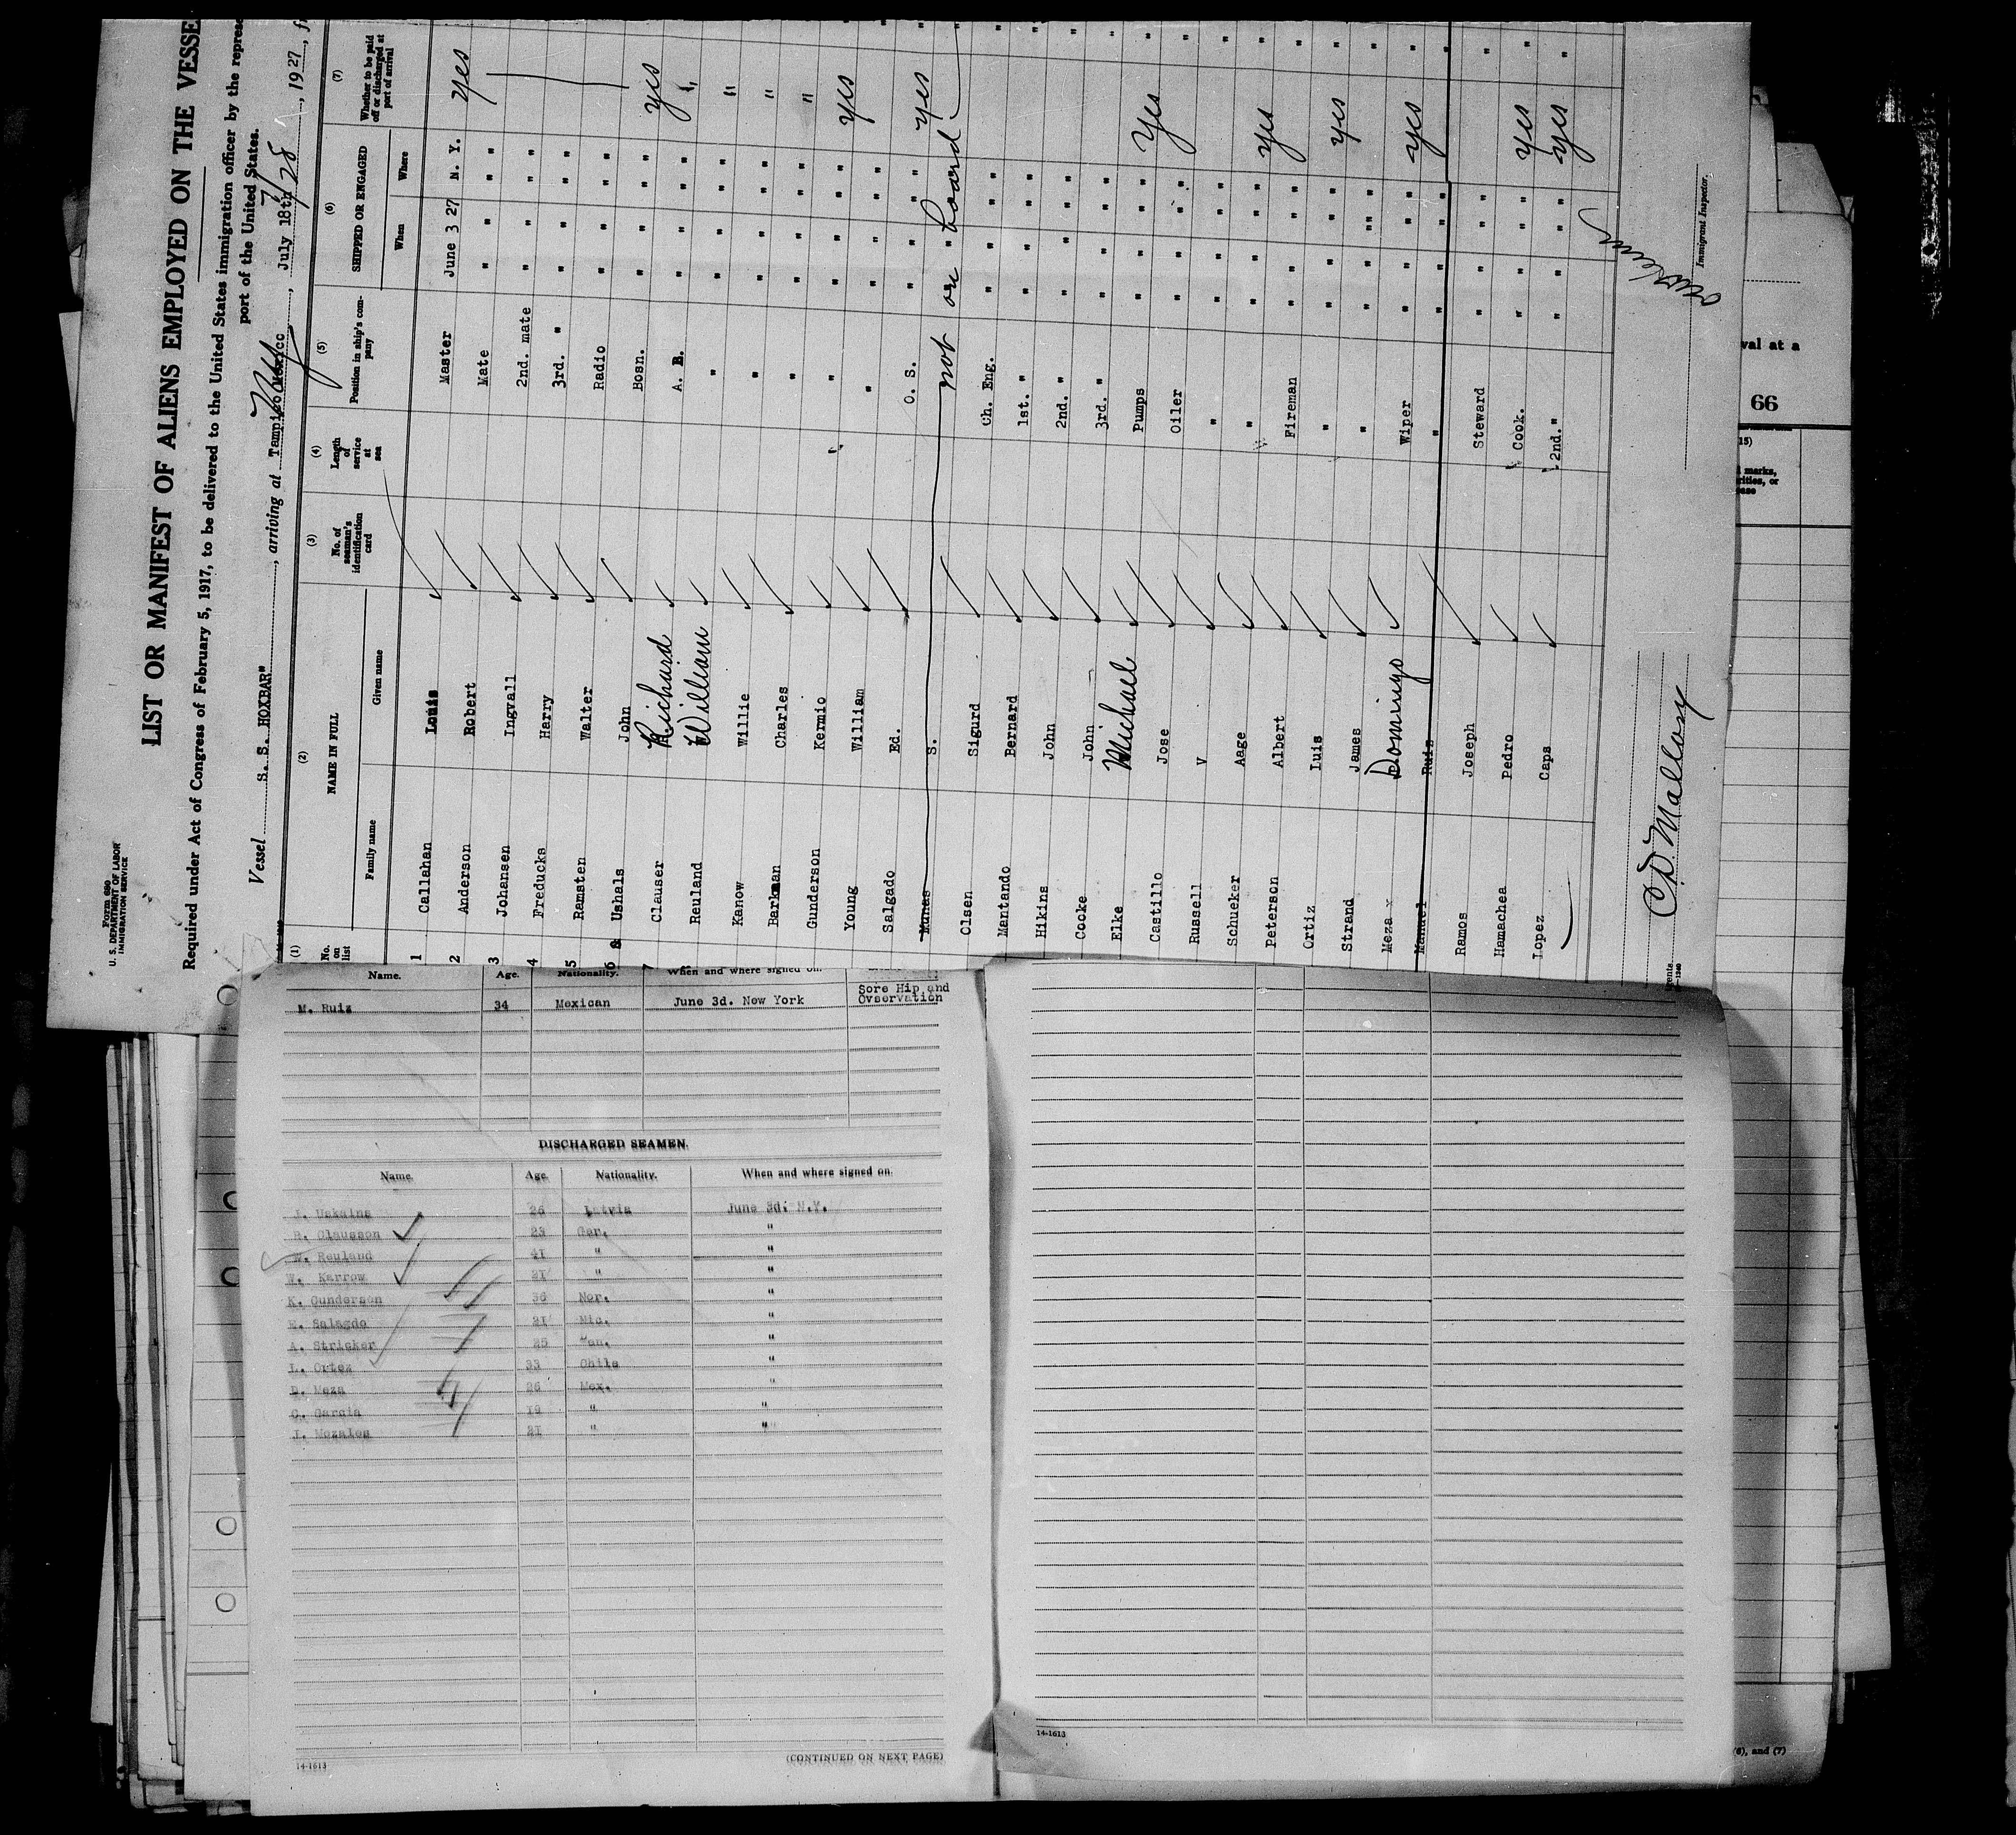 Form 680
U. S. DEPARTMENT OF LABOR
IMMIGRATION SERVICE
LIST OR MANIFEST OF ALIENS EMPLOYED ON THE VESSE
Required under Act of Congress of February 5, 1917, to be delivered to the United States immigration officer by the represe
port of the United States.
Vessel S. S. HOXBAR", arriving at Tampico Mexico, July 18th, 1927, f
7/28
(1) (2) (3) (4) (5) (6) (7)
No. on list
NAME IN FULL
Family name Given name
No. of seaman's identification card
Length of service at sea
Position in ship's company
SHIPPED OR ENGAGED
When Where
Whether to be paid off or discharged at port of arrival
1 Callahan Louis Master June 3 27 N. Y. yes
2 Anderson Robert Mate " " " "
3 Johansen Ingvall 2nd. mate " " " "
4 Freducks Harry 3rd. " " " " "
5 Ramsten Walter Radio " " " "
6 Ushals John Bosn. " " " " yes
7 Clauser Richard A. B. " " " " "
Reuland William " " " " " "
Kanow Willie " " " " " "
Barkman Charles " " " " " "
Gunderson Kermio " " " " " yes
Young William " " " " "
Salgado Ed. O. S. " " " " yes
Munas S. not on board
Olsen Sigurd Ch. Eng. " " " "
Mantando Bernard 1st. " " " " "
Hikins John 2nd. " " " " "
Cooke John 3rd. " " " " "
Elke Michael Pumps " " " " Yes
Castillo Jose Oiler " " " "
Russell V " " " " "
Schueker Aage " " " " " yes
Peterson Albert Fireman " " " "
Ortiz Luis " " " " " yes
Strand James " " " " "
Meza x Domingo Wiper " " " " yes
Manuel Ruiz " " " " "
Ramos Joseph Steward " " " "
Hamachea Pedro Cook. " " " " yes
Lopez Caps 2nd. " " " " " yes
C. D. Mallory
Immigrant Inspector.
val at a
66
15)
marks,
rities, or
ease
(6), and (7)
Name. Age. Nationality. When and where signed on.
M. Ruiz 34 Mexican June 3d. New York Sore Hip and
Ovservation
DISCHARGED SEAMEN.
Name. Age. Nationality. When and where signed on.
J. Uskains 26 Latvia June 3d. N.Y.
R. Claussen 23 Ger. "
W. Reuland 41 " "
W. Karrow 21 " "
K. Gunderson 36 Nor. "
E. Salagdo 21 Nic. "
A. Stricker 25 "
L. Ortez 33 Chile "
D. Meza 26 Mex. "
C. Garcia " "
J. Mozales 21 " "
14-1613
(CONTINUED ON NEXT PAGE)
14-1613